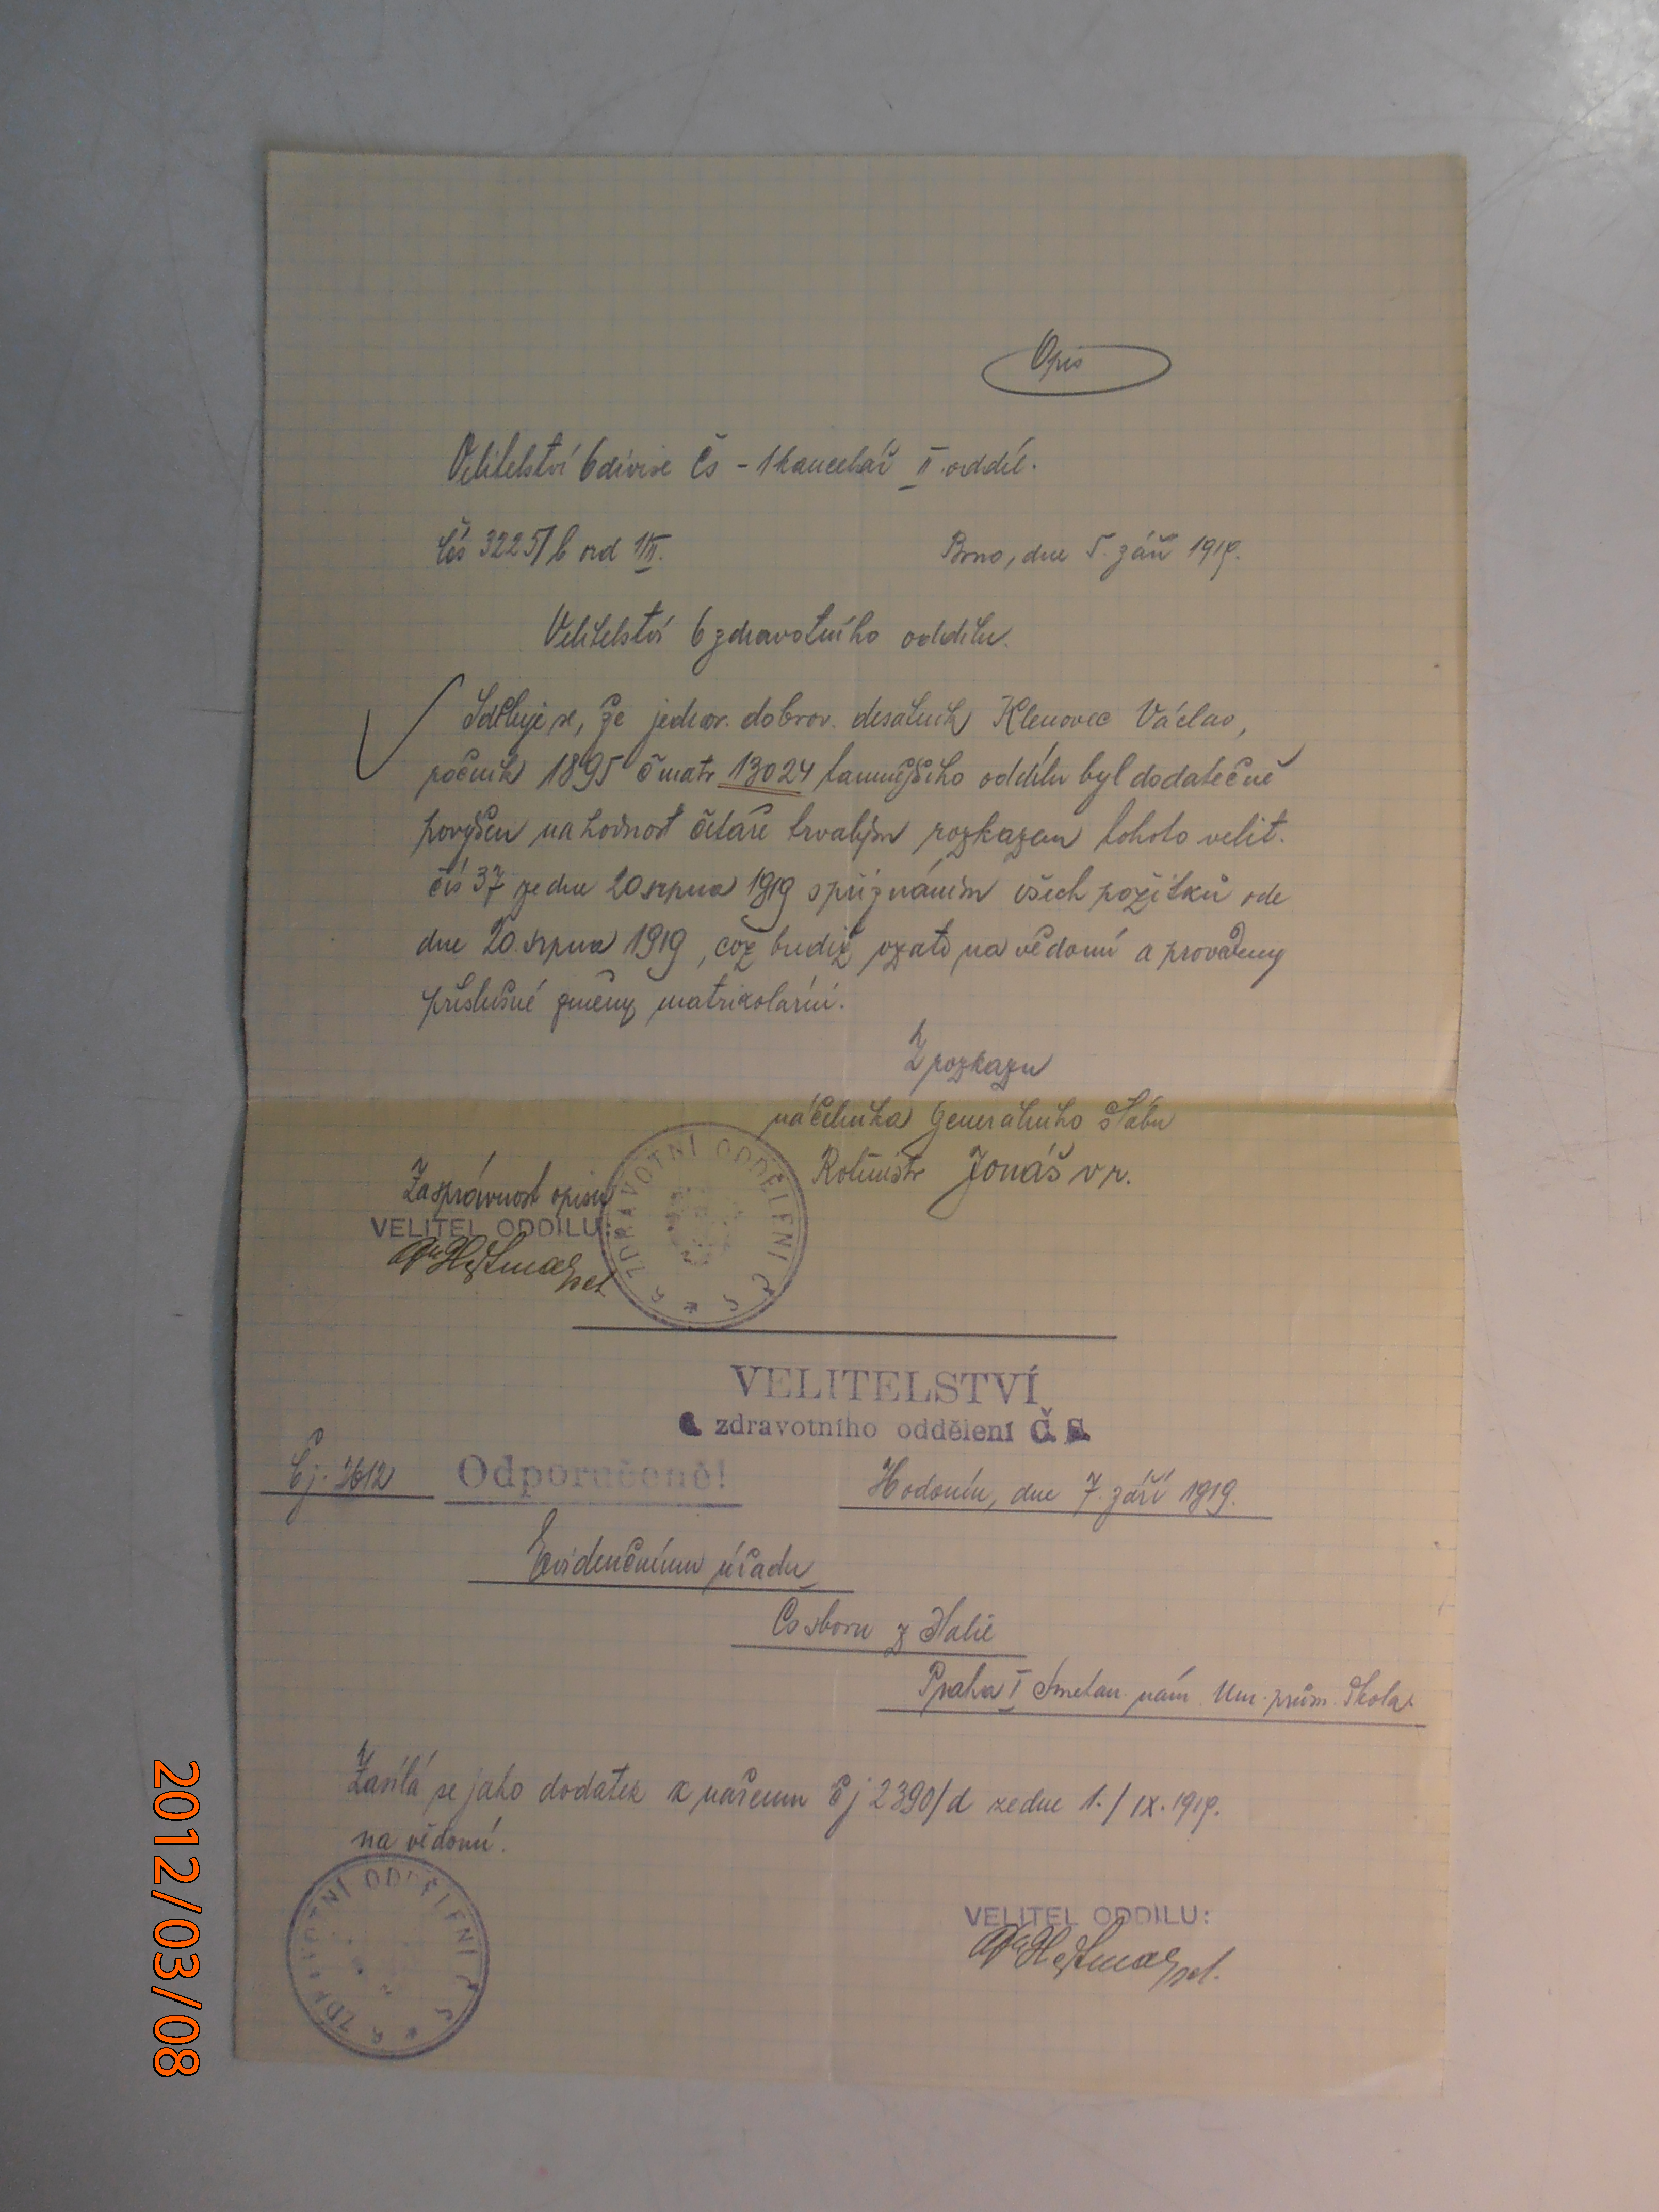 Opis
Velitelství 6 divise čs - 1 kancelář II. oddíl.
čís 3225/6 ord
Brno, dne 5. září 1919.
Velitelství 6 zdravotního oddílu.
Sděluje se, že jednor. dobrov. desátník Klenovec Václav,
ročník 1895 č matr 13024 tamnějšího oddílu byl dodatečně
povýšen na hodnost četaře trvalým rozkazem tohoto velit.
čís 37 ze dne 20 srpna 1919 s přiznáním všech požitků ode
dne 20. srpna 1919, což budiž vzato na vědomí a provedeny
příslušné změny matrikolární.
Z rozkazu
náčelníka Generalního štábu
Rotmistr Jonáš v r.
Za správnost opisu
VELITEL ODDILU:
ZDRAVOTNÍ ODDĚLENÍ Č S * 6
VELITELSTVÍ
6. zdravotního oddělení Č. S.
Čj. 2612
Odporučeně!
Hodonín, dne 7. září 1919.
Evidenčnímu úřadu
Čs sboru z Italie
Praha I Smetan. nám. Um. prům. škola
Zasílá se jako dodatek k našemu čj 2390/d ze dne 1./IX. 1919.
na vědomí.
ZDRAVOTNÍ ODDĚLENÍ Č S * 6
VELITEL ODDILU:
2012/03/08